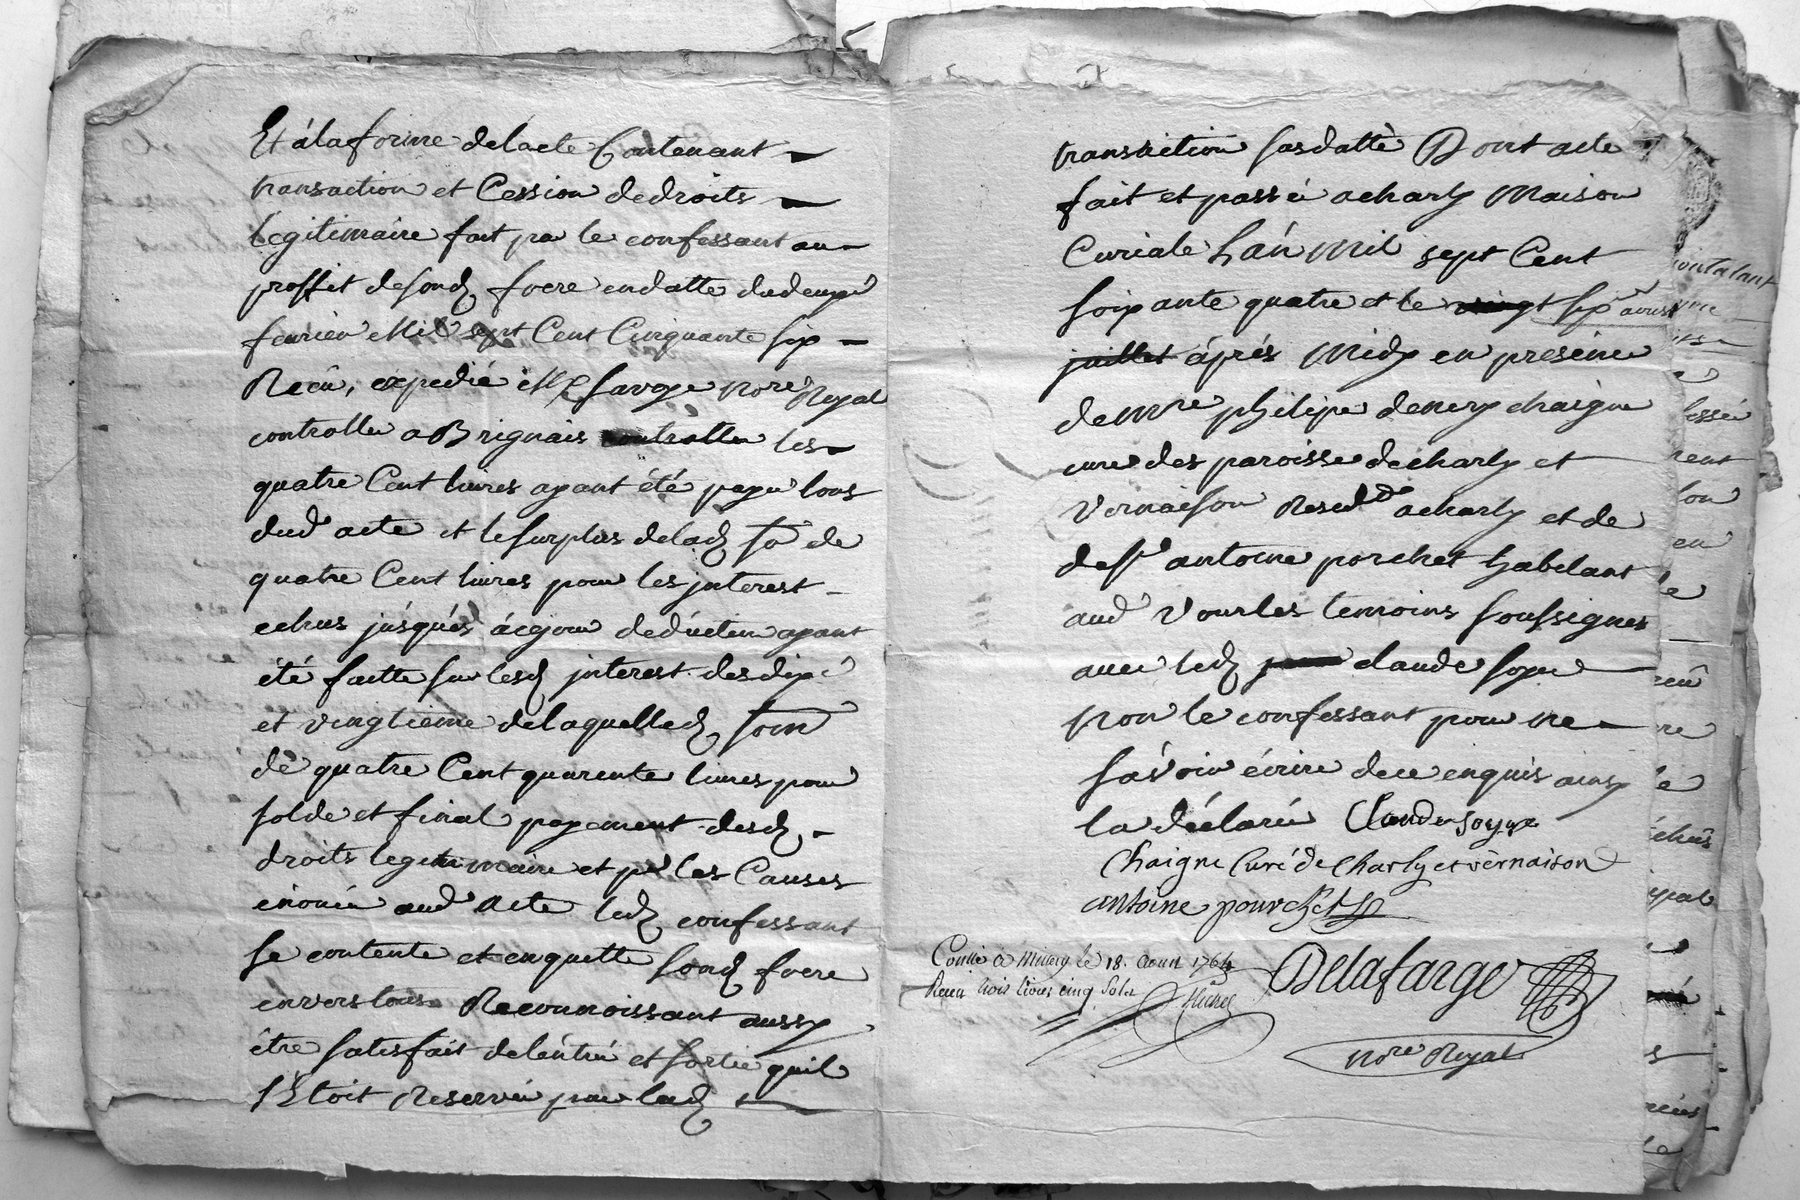 Et á la forme de lacte Contenant
transaction et Cession de droits
legitimaire fait par le confessant au
proffit de sond frere en datte du deuxe
fevrier Mil sept Cent Cinquante six
Recû, expedié Me Savoye nore Royal
controllé a Brignais controllé les
quatre Cent livres ayant été payé lors
dud acte et le surplus de lad so de
quatre Cent livres pour les jnterest
echus jusques á ce jour deduction ayant
été faitte sur lesd jnterest des dixe
et vingtieme de laquelled som
de quatre Cent quarente livres pour
solde et final payement desd
droits legitimaire et pr les Causes
énoncé aud Acte led confessant
se contente et en quitte sond frere
envers tous Reconnoissant aussy
être satisfait de lentrée et sortie quil
sEtoit Reservée par lad
transaction susdatte Dont acte
fait et passé a charly Maison
Curiale Lán Mil sept Cent
soixante quatre et le vingt six aoust
juillet áprés Midy en presence
de Mre philipe denery chaigne
curé des paroisse de charly et
Vernaison Residt a charly et de
de sr antoine porchet habitant
aud Vourles temoins soussignes
avec led claude soyer
non le confessant pour ne
sávoir écrire de ce enquis ainsy
la déclaré Claude soyer
Chaigne Curé de Charly et vèrnaison
antoine pourchet
Conllé à Millery le 18. Aoust 1764
Recu trois livres cinq Sols
Delafarge
nore Royal